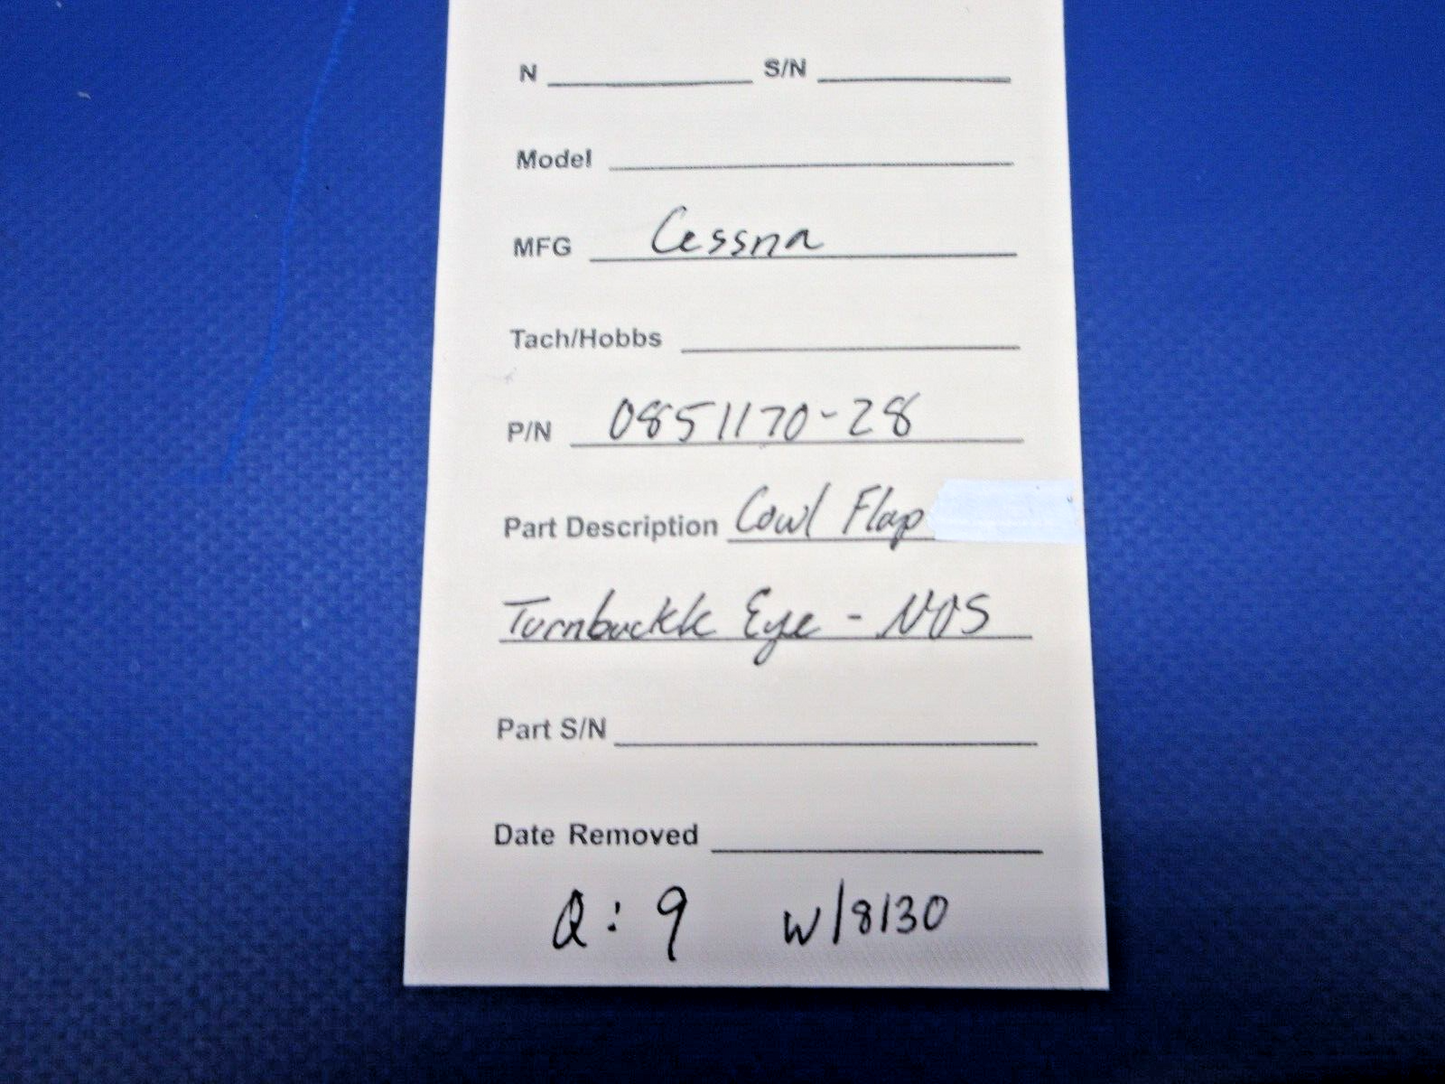 N S/N
Model
MFG Cessna
Tach/Hobbs
P/N 0851170-28
Part Description Cowl Flap
Turnbuckle Eye - NOS
Part S/N
Date Removed
Q: 9 w/8130